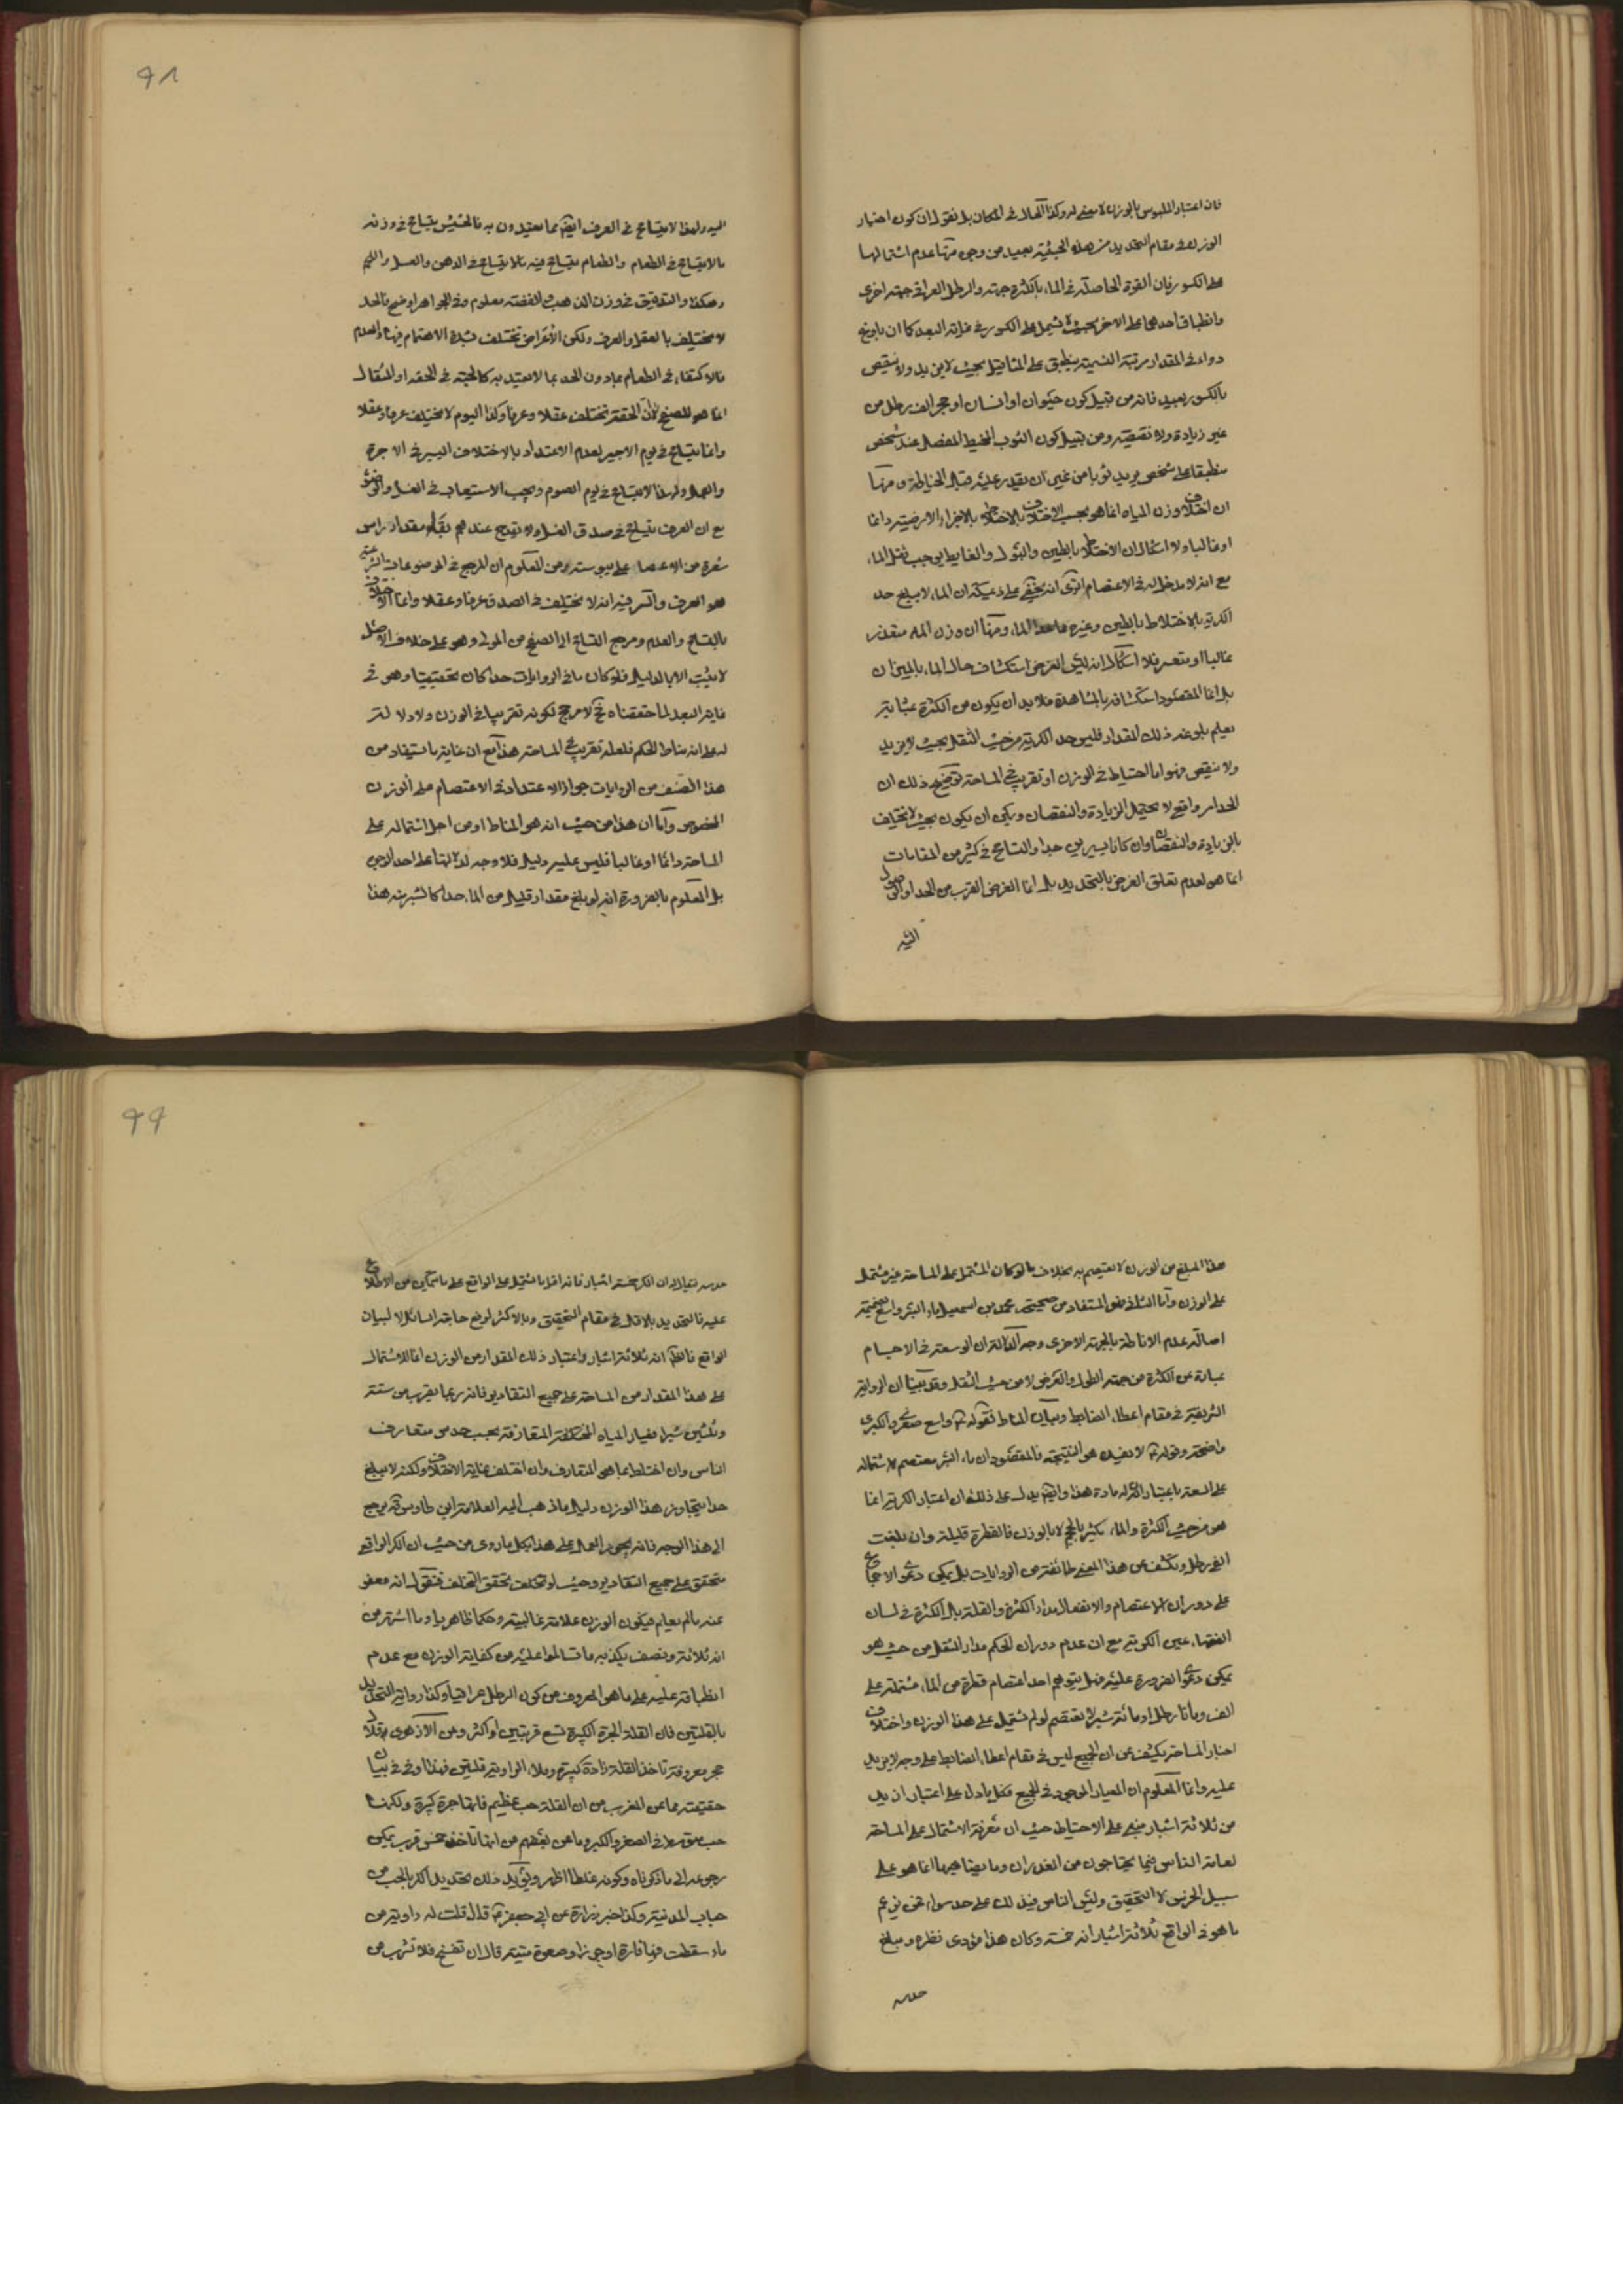 فان اعتبار الملبوس بالوزن لا معنى له وكذا الحال في المكان بل نقول ان كون اعتبار
الوزن في مقام التحديد من هذه الحيثية بعيد من وجوه منها عدم اشتمالها
على الكسور فان القوة الحاصلة في الماء بالكثرة جهة والرطل العراقي جهة اخرى
وانطباق احدهما على الاخر بحيث لا يشمل على الكسور في غاية البعد كما ان
دواء في المقدار مرتبة السمية ينطبق على المثاقيل بحيث لا يزيد ولا ينقص
بالكسور بعيد فانه من قبيل كون حيوان او انسان او حجر الف رطل من
غير زيادة ولا نقيصة ومن قبيل كون الثوب المخيط المفصل عند شخص
منطبقا على شخص يريد ثوبا من غير ان يقدر عليه قبل الخياطة ومنها
ان اختلاف وزن المياه انما هو بحسب الاختلاف بالاختلاط بالاجزاء الارضية دائما
او غالبا ولا اشكال ان الاختلاط بالطين والبول والغايط يوجب ثقل الماء
مع انه لا مدخل له في الاعتصام اترى انه يخفى على ذي مسكة ان الماء لا يبلغ حد
الكرية بالاختلاط بالطين وغيره ماعدا الماء ومنها ان وزن الماء متعذر
غالبا او متعسر فلا اشكال انه ليس الغرض استكشاف حال الماء بالميزان
بل انما المقصود استكشافه بالمشاهدة فلا بد ان يكون من الكثرة بمثابة
يعلم بلوغه ذلك المقدار فليس حد الكرية من حيث الثقل بحيث لا يزيد
ولا ينقص فهو اما احتياط في الوزن او تقريب في المساحة توضيح ذلك ان
الحد امر واقعي لا يحتمل الزيادة والنقصان ويمكن ان يكون بحيث لا يختلف
بالزيادة والنقصان وان كانا يسيرين جدا والتسامح في كثير من المقامات
انما هو لعدم تعلق الغرض بالتحديد بل انما الغرض القرب من الحد او الوصول
اليه
٩٨
اليه ولهذا لا يتسامح في العرف ايضا مما يعتدون به فالحشيش يتسامح في وزنه
بما لا يتسامح في الطعام والطعام يتسامح فيه بما لا يتسامح في الدهن والعسل واللحم
وهكذا والتدقيق في وزن الذهب والفضة معلوم وفي الجواهر اوضح فالحد
لا يختلف بالعقل والعرف ولكن الاغراض تختلف بشدة الاهتمام فيها والعدم
فالاكتفاء في الطعام بما دون الحد بما لا يعتد به كالحبة في الحقة او المثقال
انما هو للصفح لا ان الحقة تختلف عقلا وعرفا وكذا اليوم لا يختلف عرفا وعقلا
وانما يتسامح في يوم الاجير لعدم الاعتداد بالاختلاف اليسير في الاجرة
والعمل ولهذا لا يتسامح في يوم الصوم ويجب الاستيعاب في الغسل والوضوء
مع ان العرف يتسامح في صدق الغسل ولا يقدح عندهم بقاء مقدار راس
شعرة من الاعضاء على يبوسته ومن المعلوم ان المرجع في الموضوعات الشرعية
هو العرف والسر فيه انه لا يختلف في الصدق عرفا وعقلا وانما الاختلاف
بالتسامح والعدم ومرجع التسامح الى الصفح من المولى وهو على خلاف الاصل
لا يثبت الا بالدليل فلو كان ما في الروايات حدا كان تحقيقيا وهو في
غاية البعد لما حققناه فلا مرجح لكونه تقريبا في الوزن ولا دلالة
له على انه مناط الحكم فلعله تقريب في المساحة هذا مع ان غاية ما يستفاد من
هذا الصنف من الروايات جواز الاعتداد في الاعتصام على الوزن
المخصوص واما ان هذا من حيث انه هو المناط او من اجل اشتماله على
المساحة دائما او غالبا فليس عليه دليل فلا وجه لدلالتها على احد الامرين
بل المعلوم بالضرورة انه لو بلغ مقدار قليل من الماء حدا كالشبر منه هذا
هذا المبلغ من الوزن لا يعتصم به بخلاف ما لو كان المشتمل على المساحة غير مشتمل
على الوزن واما الثاني فهو المستفاد من صحيحة محمد بن اسمعيل ماء البئر واسع بضميمة
اصالة عدم الاناطة بالجهة الاخرى وجه الدلالة ان الوسعة في الاجسام
عبارة عن الكثرة من جهة الطول والعرض لا من حيث الثقل وقد بينا ان الرواية
الشريفة في مقام اعطاء الضابط وبيان المناط فقوله ع واسع صغرى والكبرى
واضحة وقوله ع لا يفسده هو النتيجة فالمقصود ان ماء البئر معتصم لاشتماله
على السعة باعتبار ان له مادة هذا وايضا يدل على ذلك ان اعتبار الكرية انما
هو من حيث الكثرة والماء يكثر بالحجم لا بالوزن فالقطرة قليلة وان بلغت
الف رطل ويكشف عن هذا المعنى طائفة من الروايات بل يمكن دعوى الاجماع
على دوران الاعتصام والانفعال مدار الكثرة والقلة بل الكثرة في لسان
الفقهاء عين الكرية مع ان عدم دوران الحكم مدار الثقل من حيث هو
يمكن دعوى الضرورة عليه فهل يتوهم احد اعتصام قطرة من الماء مشتملة على
الف ومأتا رطل او مائة شبر لا يعتصم لو لم يشتمل على هذا الوزن واختلاف
اخبار المساحة يكشف عن ان الجميع ليس في مقام اعطاء الضابط على وجه لا يزيد
عليه وانما المعلوم ان المعيار الموجود في الجميع فكل ما دل على اعتبار ازيد
من ثلاثة اشبار مبني على الاحتياط حيث ان معرفة الاشتمال على المساحة
لعامة الناس فيما يحتاجون من الغدران وما يضاهيها انما هو على
سبيل الخرص لا التحقيق وليس الناس في ذلك على حد سواء فمن يزعم
ما هو في الواقع ثلاثة اشبار انه خمسة وكان هذا مؤدى نظره ومبلغ
حدسه
٩٩
حدسه يقال له ان الكر خمسة اشبار فانه اقل ما اشتمل على الواقع على ما تخمين من الاطلاع
عليه فالتحديد بالاقل في مقام التحقيق وبالاكثر لرفع حاجة السائل لا لبيان
الواقع فالظاهر انه ثلاثة اشبار واعتبار ذلك المقدار من الوزن انما لاشتماله
على هذا المقدار من المساحة على جميع التقادير فانه ربما يقرب من ستة
وثلثين شبرا بعيار المياه المختلفة المتعارفة بحسب حدس متعارف
الناس وان اختلط بما هو المتعارف وان اختلف غاية الاختلاف ولكنه لا يبلغ
حدا يتجاوز هذا الوزن ولعل ما ذهب اليه العلامة ابن طاوس قده يرجع
الى هذا الوجه فانه يجوز العمل على هذا بكل ما روى من حيث ان الكر الواقعي
متحقق على جميع التقادير وحيث لو تخلف تحقق التخلف فنقول انه معفو
عنه ما لم يعلم فيكون الوزن علامة غالبية وحكما ظاهريا وما اشتهر من
انه ثلاثة ونصف يكذبه ما تسالموا عليه من كفاية الوزن مع عدم
انطباقه عليه على ما هو المعروف من كون الرطل عراقيا وكذا رواية التحديد
بالقلتين فان القلة الجرة الكبيرة تسع قربتين او اكثر وعن الازهري قلال
هجر معروفة تاخذ القلة مزادة كبيرة وتملاء الراوية قلتين فهذا اوفى في بيان
حقيقته مما عن المغرب من ان القلة حب عظيم فانها جرة كبيرة ولكنها
حب متوسط في الصغر والكبر وما عن بعضهم من انها تاخذ خمس قرب يمكن
رجوعه الى ما ذكرناه وكونه غلطا اظهر ويؤكد ذلك تحديد الكر بالحب من
حباب المدنية وكذا خبر زرارة عن ابي جعفر ع قال قلت له راوية من
ماء سقطت فيها فارة او جرذ او صعوة ميتة قال ان تفسخ فلا تشرب من